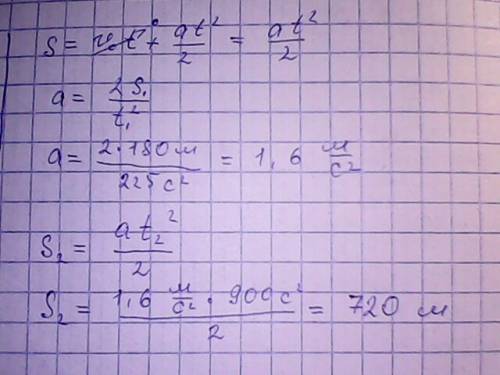 S = v₀t + at²/2 = at²/2
a = 2S₁/t₁²
a = 2·180м/225с² = 1,6 м/с²
S₂ = at₂²/2
S₂ = 1,6 м/с² · 900с²/2 = 720 м